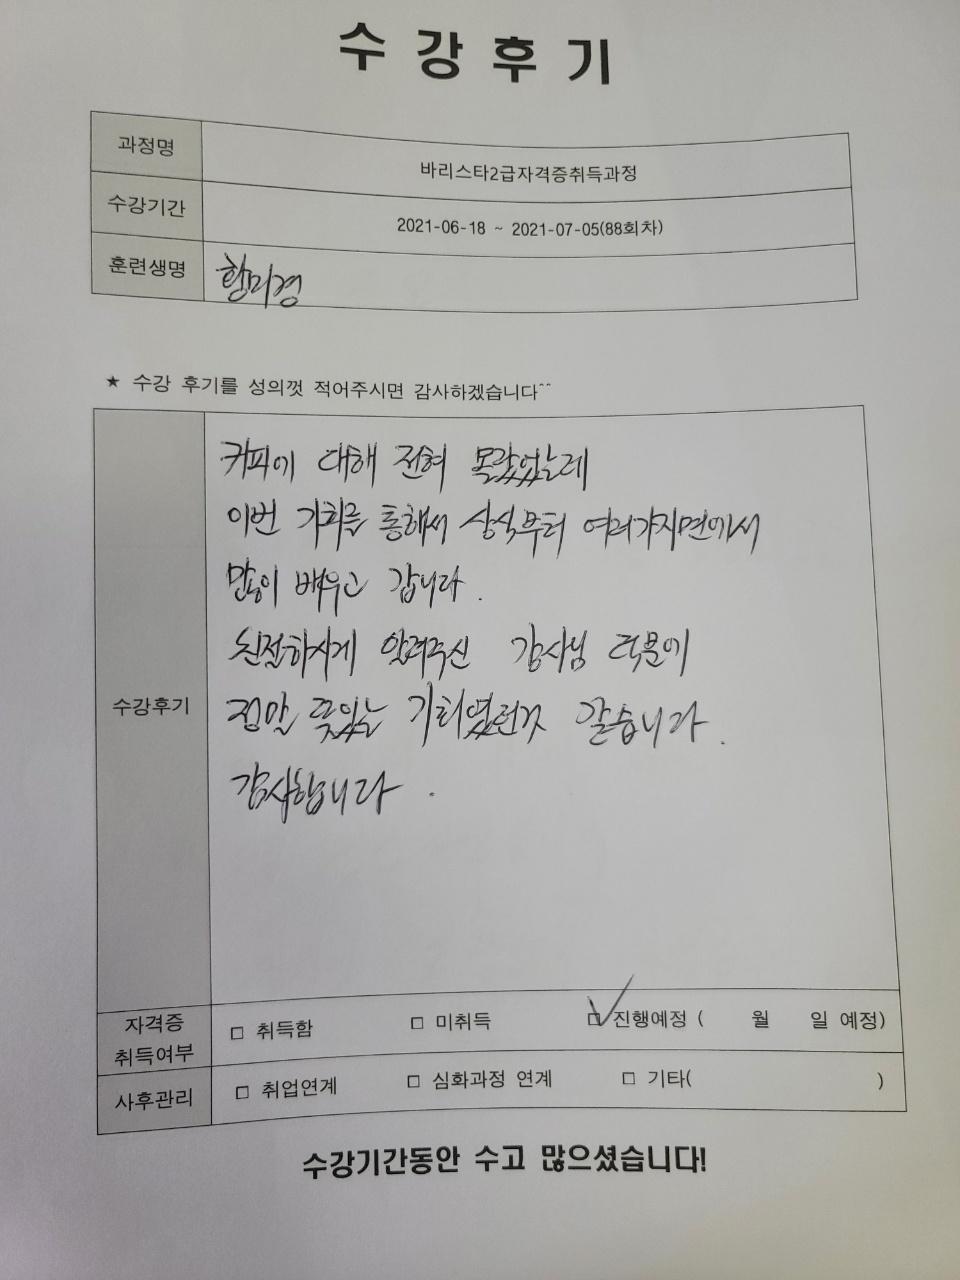 수강후기
과정명 바리스타2급자격증취득과정
수강기간 2021-06-18 ~ 2021-07-05(88회차)
훈련생명 함미경
★ 수강 후기를 성의껏 적어주시면 감사하겠습니다^^
커피에 대해 전혀 몰랐었는데
이번 기회를 통해서 상식부터 여러가지면에서
많이 배우고 갑니다.
친절하시게 알려주신 강사님 덕분에
정말 뜻있는 기회였던것 같습니다.
감사합니다.
수강후기
자격증 취득여부 □ 취득함 □ 미취득 ☑ 진행예정 ( 월 일 예정)
사후관리 □ 취업연계 □ 심화과정 연계 □ 기타( )
수강기간동안 수고 많으셨습니다!